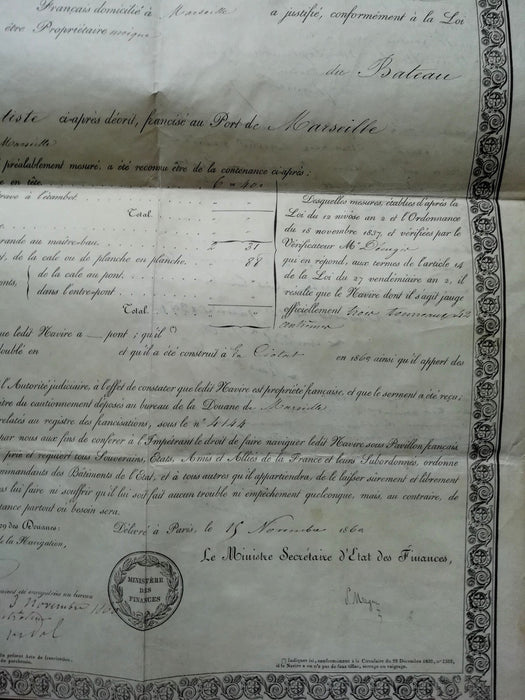 Français domicilié à Marseille a justifié, conformément à la Loi
être Propriétaire unique
du Bateau
tiste ci-après décrit, francisé au Port de Marseille
Marseille
préalablement mesuré, a été reconnu être de la contenance ci-après:
e en tête. 6 " 40
trave à l'étambot.
Total.
rande au maître-bau. 2 31
, de la cale ou de planche en planche. 89
onts, de la cale au pont.
dans l'entre-pont.
Total.
Desquelles mesures, établies d'après la
Loi du 12 nivôse an 2 et l'Ordonnance
du 18 novembre 1837, et vérifiées par le
Vérificateur Mr
qui en répond, aux termes de l'article 14
de la Loi du 27 vendémiaire an 2, il
résulte que le Navire dont il s'agit jauge
officiellement trois tonneaux
centièmes
que ledit Navire a pont; qu'il (*)
doublé en et qu'il a été construit à la Ciotat en 1860 ainsi qu'il appert des
l'Autorité judiciaire, à l'effet de constater que ledit Navire est propriété française, et que le serment a été reçu;
tre du cautionnement déposés au bureau de la Douane de Marseille
relatés au registre des francisations, sous le n° 4144
par nous aux fins de conférer à l'Impétrant le droit de faire naviguer ledit Navire sous Pavillon français,
prie et requiert tous Souverains, États, Amis et Alliés de la France et leurs Subordonnés, ordonne
ommandants des Bâtiments de l'État, et à tous autres qu'il appartiendra, de le laisser surement et librement
as lui faire ni souffrir qu'il lui soit fait aucun trouble ni empêchement quelconque, mais, au contraire, de
stance partout où besoin sera.
ng des Douanes:
de la Navigation,
Délivré à Paris, le 15 Novembre 1860
Le Ministre Secrétaire d'État des Finances,
MINISTÈRE
DES
FINANCES
ment été enregistrée au bureau
Novembre
du présent Acte de francisation,
de parchemin.
(*) Indiquer ici, conformément à la Circulaire du 28 Décembre 1832, n° 1362,
si le Navire a ou n'a pas de faux tillac, serrage ou vaigrage.